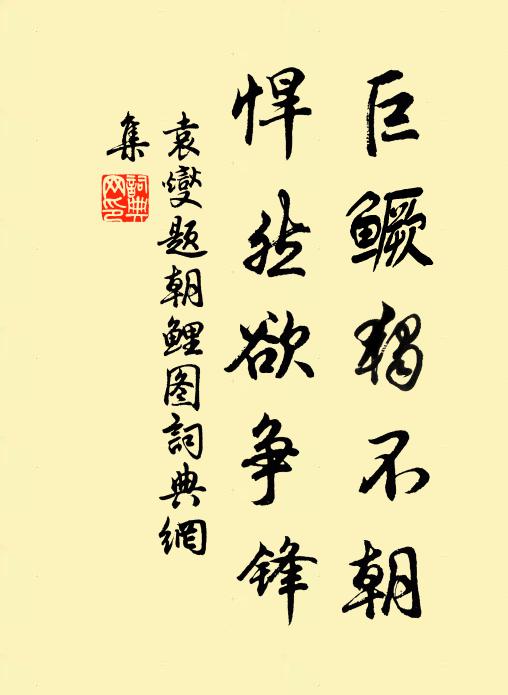 巨鳜獨不朝
悍然欲争锋
袁燮题朝鲤图詞典網
集
詞典网印